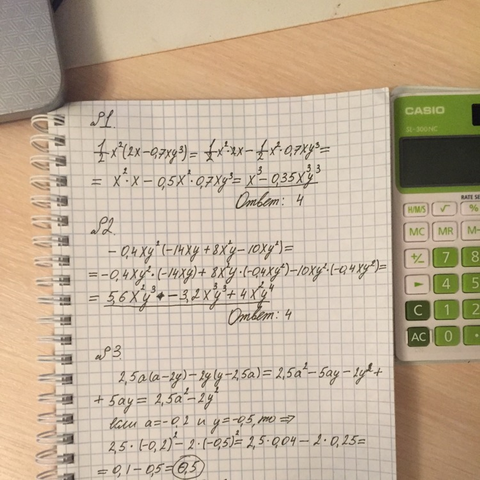 №1.
1/2x²(2x-0,7xy³)=1/2x²·2x-1/2x²·0,7xy³=
= x²·x-0,5x²·0,7xy³=x³-0,35x³y³
Ответ: 4
№2
-0,4xy²(-14xy+8x²y-10xy²)=
=-0,4xy²·(-14xy)+8x²y·(-0,4xy²)-10xy²·(-0,4xy²)=
= 5,6x²y³ - 3,2x³y³+4x²y⁴
Ответ: 4
№3
2,5a(a-2y)-2y(y-2,5a)=2,5a²-5ay-2y²+
+5ay=2,5a²-2y²
если a=-0,2 и y=-0,5, то ⇒
2,5·(-0,2)²-2·(-0,5)²=2,5·0,04-2·0,25=
=0,1-0,5=0,5
CASIO
H/M/S √ %
MC MR M-
+/- 7 8
► 4 5
C 1 2
AC 0 ·